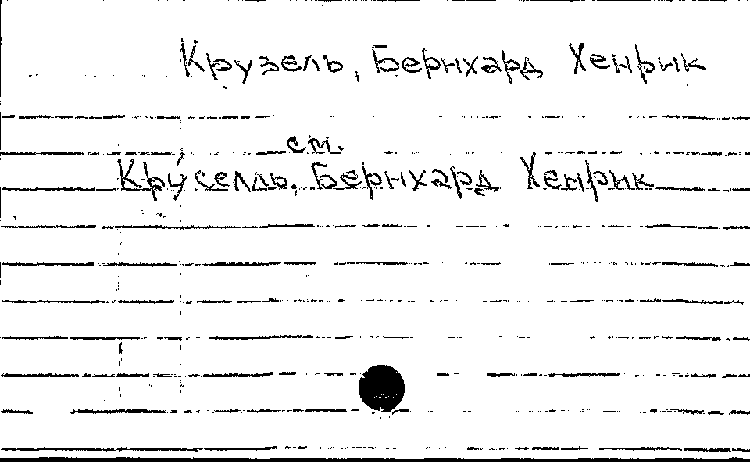 Крузель, Бернхард Хенрик
см.
Кру́селль, Бернхард Хенрик